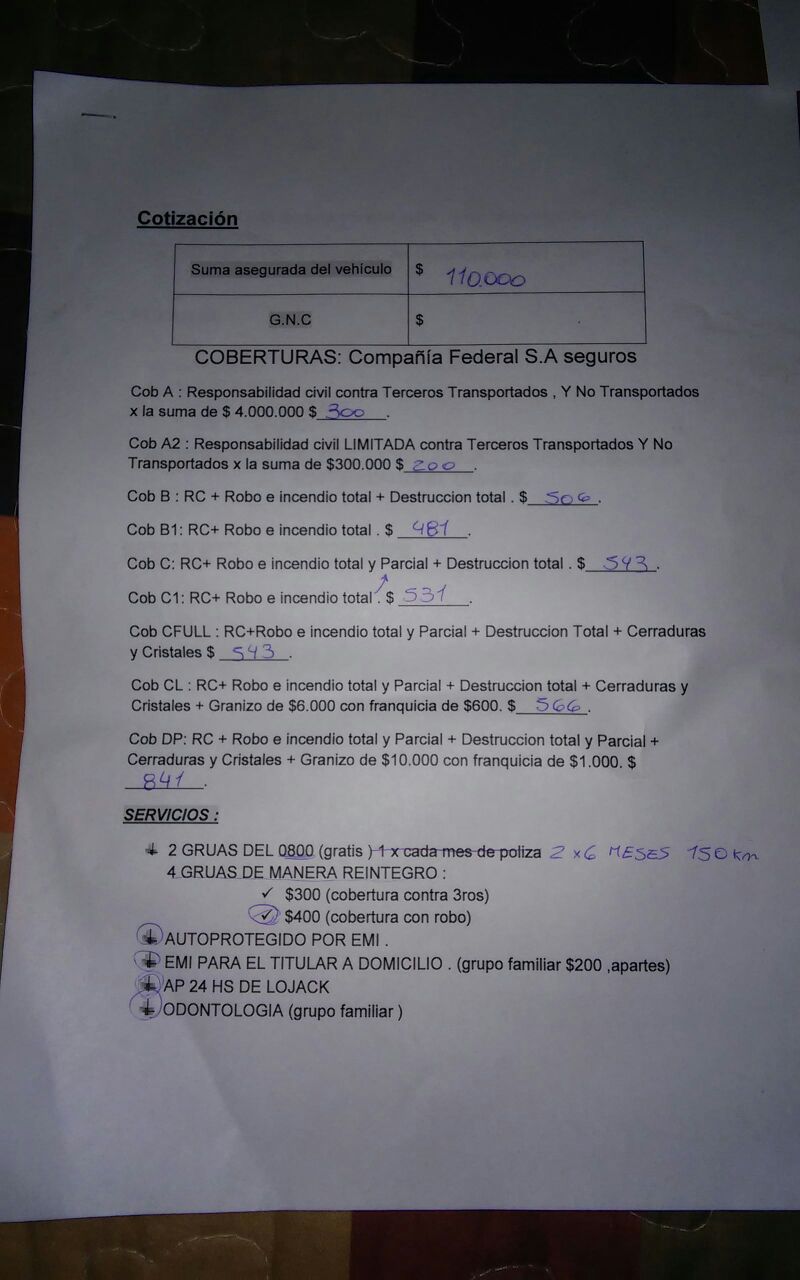 Cotización
Suma asegurada del vehículo $ 110.000
G.N.C $
COBERTURAS: Compañía Federal S.A seguros
Cob A : Responsabilidad civil contra Terceros Transportados , Y No Transportados
x la suma de $ 4.000.000 $ 300 .
Cob A2 : Responsabilidad civil LIMITADA contra Terceros Transportados Y No
Transportados x la suma de $300.000 $ 200 .
Cob B : RC + Robo e incendio total + Destruccion total . $ 506 .
Cob B1: RC+ Robo e incendio total . $ 481 .
Cob C: RC+ Robo e incendio total y Parcial + Destruccion total . $ 543 .
Cob C1: RC+ Robo e incendio total . $ 531 .
Cob CFULL : RC+Robo e incendio total y Parcial + Destruccion Total + Cerraduras
y Cristales $ 543 .
Cob CL : RC+ Robo e incendio total y Parcial + Destruccion total + Cerraduras y
Cristales + Granizo de $6.000 con franquicia de $600. $ 566 .
Cob DP: RC + Robo e incendio total y Parcial + Destruccion total y Parcial +
Cerraduras y Cristales + Granizo de $10.000 con franquicia de $1.000. $
841 .
SERVICIOS :
2 GRUAS DEL 0800 (gratis ) 1 x cada mes de poliza 2 x 6 MESES 150 km
4 GRUAS DE MANERA REINTEGRO :
✓ $300 (cobertura contra 3ros)
✓ $400 (cobertura con robo)
AUTOPROTEGIDO POR EMI .
EMI PARA EL TITULAR A DOMICILIO . (grupo familiar $200 ,apartes)
AP 24 HS DE LOJACK
ODONTOLOGIA (grupo familiar )